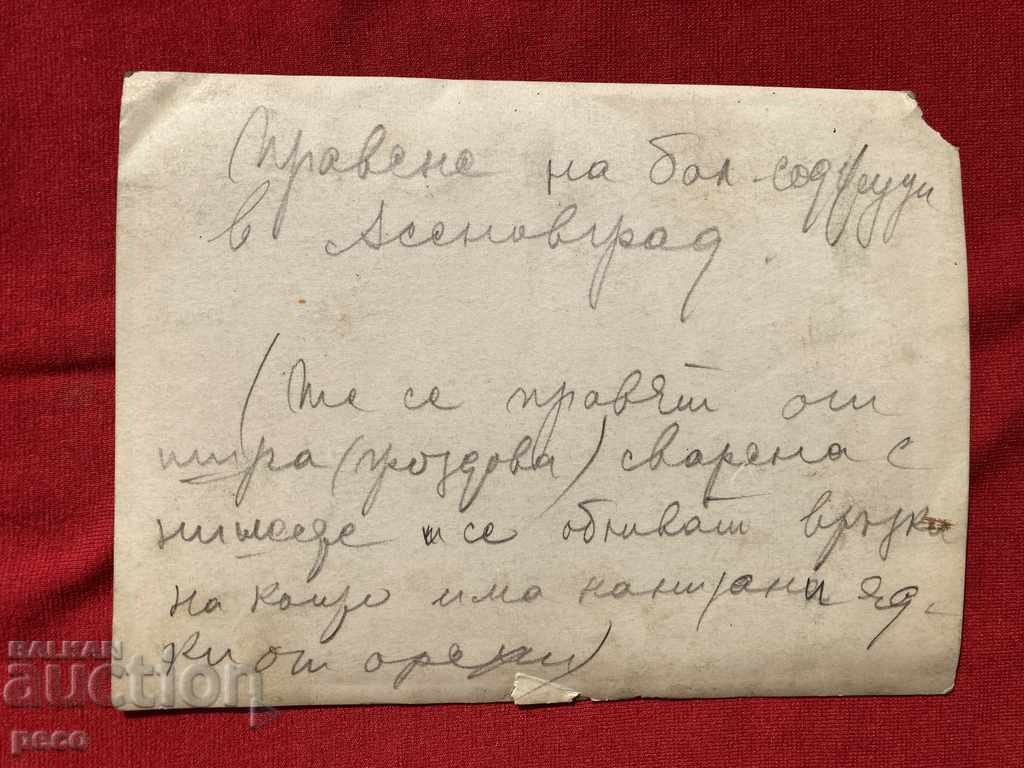 Правене на бал-соджуци
в Асеновград.
(Те се правят от
шира (гроздова) сварена с
нишеде и се обливат връзки
на които има нанизани яд-
ки от орехи)
BALKAN
auction
peco